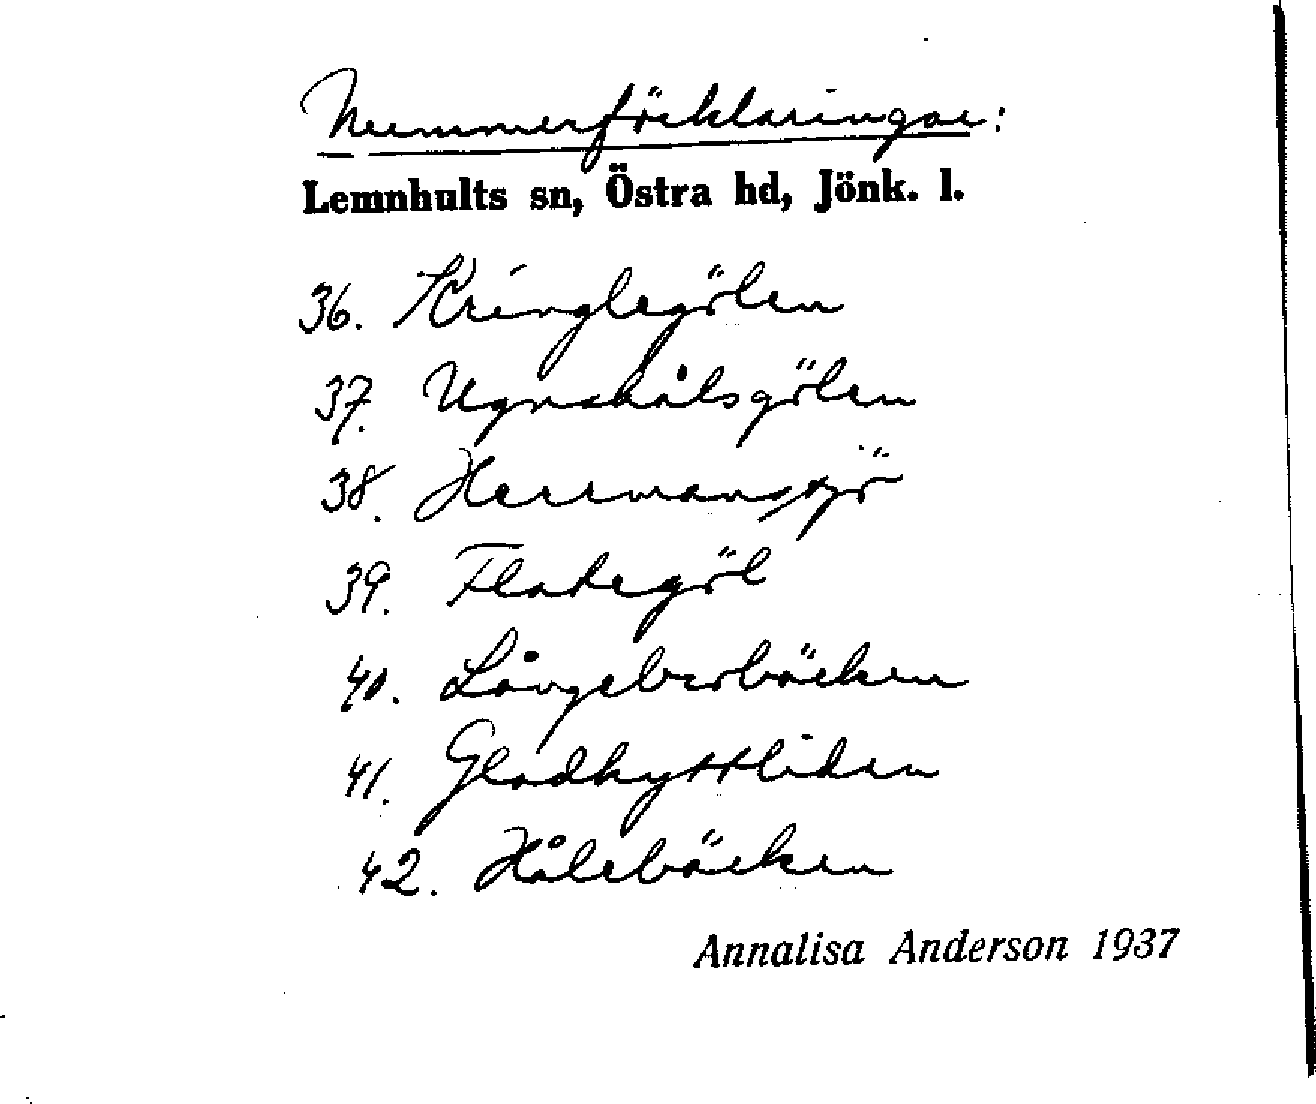 Nummerförklaringar:
Lemnhults sn, Östra hd, Jönk. l.
36. Kringlegölen
37. Ugnshålsgölen
38. Herrmanssjö
39. Flategöl
40.
41. Gladhyttliden
42. Hålebäcken
Annalisa Anderson 1937